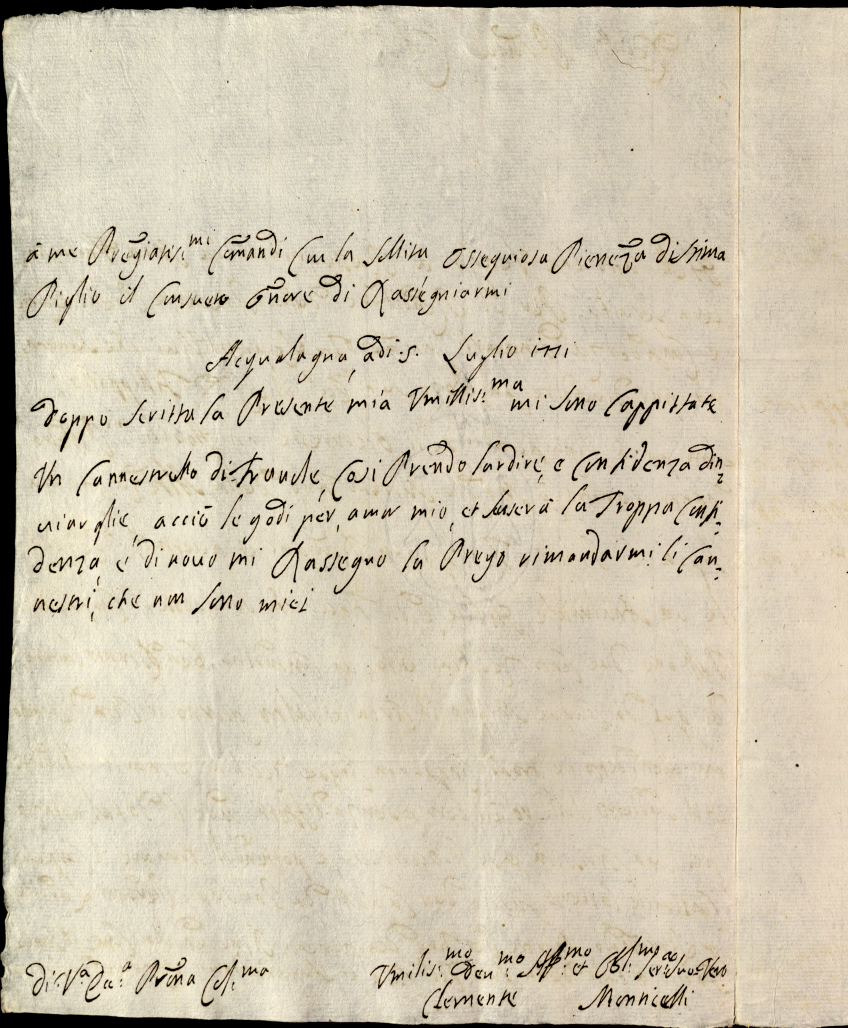 à me Pregiatiss.mi Comandi Con la Solita Ossequiosa Pienezza di stima
Piglio il Consueto Onore di Rassegniarmi
Acqualagna, adi 5. Luglio 1771
doppo scritta la Presente mia Vmilliss.ma mi sono Cappittate
Vn Cannestrello di Trouele, Cosi Prendo l'ardire, e Confidenza din=
uiarglie, acciò le godi per amor mio, et scuserà la Troppa Confi=
denza, e di nouo mi Rassegno la Prego rimandarmi li Can=
nestri, che non sono miei
di V.a Prõna Col.ma
Vmilis.mo Deu.mo Aff.mo et Obl.mo Vero
Clemente Monticelli